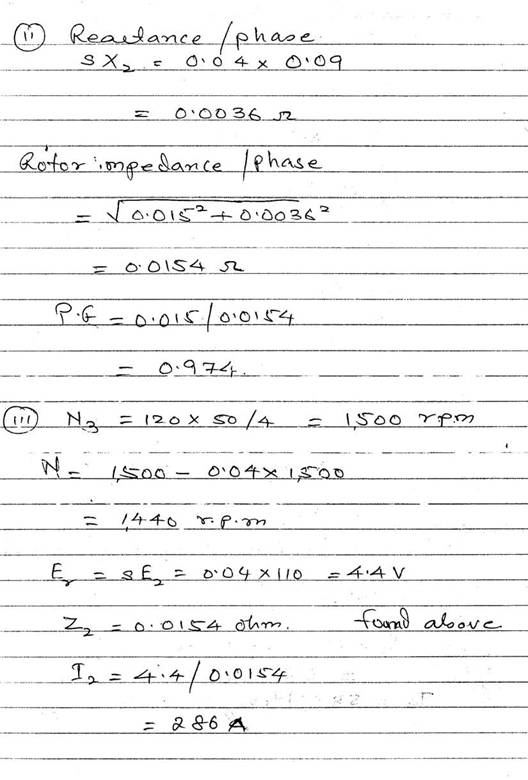 (ii) Reactance / phase
SX₂ = 0.04 × 0.09
= 0.0036 Ω
Rotor impedance / phase
= √0.015² + 0.0036²
= 0.0154 Ω
P.F = 0.015 / 0.0154
= 0.974.
(iii) N₃ = 120 × 50 / 4 = 1,500 r.p.m
N = 1,500 − 0.04 × 1,500
= 1,440 r.p.m
Eᵣ = sE₂ = 0.04 × 110 = 4.4 V
Z₂ = 0.0154 ohm. found above
I₂ = 4.4 / 0.0154
= 286 A